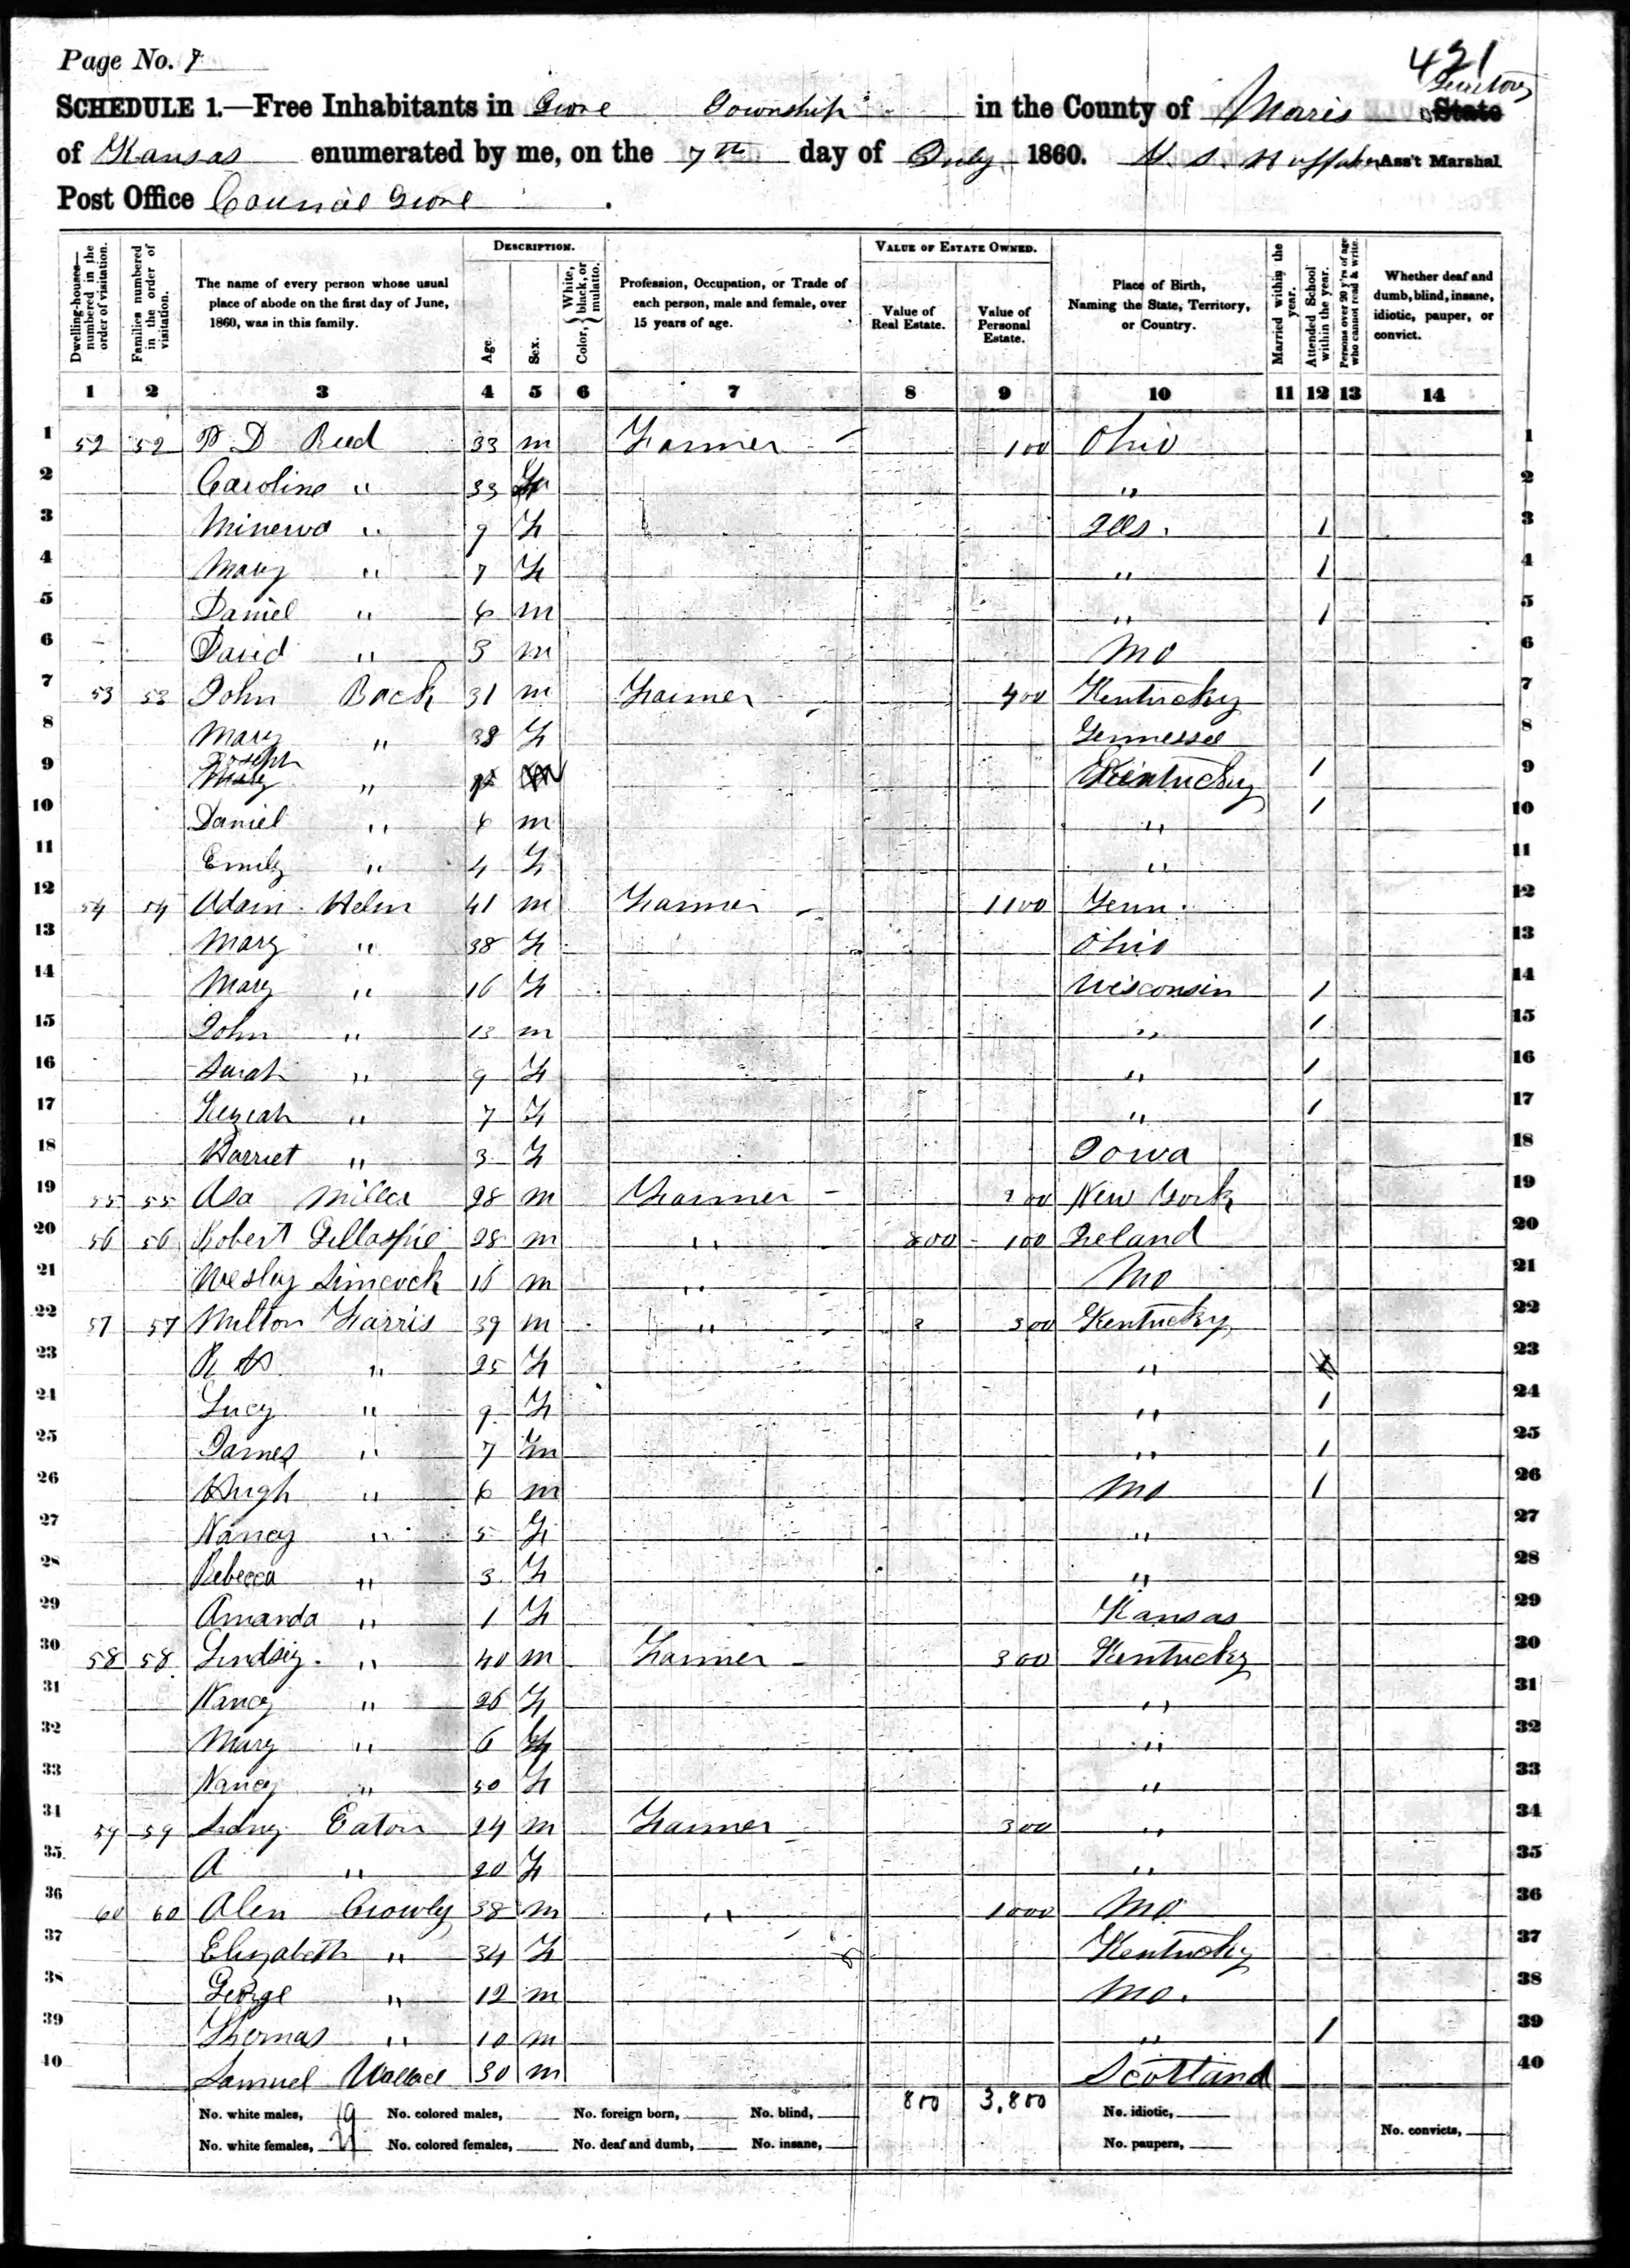 Page No. 7
421
Territory
SCHEDULE 1.—Free Inhabitants in Grove Township in the County of Morris State
of Kansas enumerated by me, on the 7th day of July 1860. Ass't Marshal
Post Office Council Grove
Dwelling-houses— numbered in the order of visitation.
Families numbered in the order of visitation.
The name of every person whose usual place of abode on the first day of June, 1860, was in this family.
DESCRIPTION.
Age.
Sex.
Color, { White, black, or mulatto.
Profession, Occupation, or Trade of each person, male and female, over 15 years of age.
VALUE OF ESTATE OWNED.
Value of Real Estate.
Value of Personal Estate.
Place of Birth, Naming the State, Territory, or Country.
Married within the year.
Attended School within the year.
Persons over 20 y'rs of age who cannot read & write.
Whether deaf and dumb, blind, insane, idiotic, pauper, or convict.
1 2 3 4 5 6 7 8 9 10 11 12 13 14
1 52 52 D Reed 33 m Farmer 100 Ohio 1
2 Caroline " 33 " 2
3 Minerva " 9 F Ills. / 3
4 Mary " 7 F " / 4
5 Daniel " 6 m " / 5
6 David " 3 m Mo 6
7 53 53 John Back 31 m Farmer 400 Kentucky 7
8 Mary " 38 F Tennessee 8
9 Joseph " Kentucky / 9
10 Daniel " 6 m " / 10
11 Emily " 4 F " 11
12 54 54 Adam Helm 41 m Farmer 1100 Tenn. 12
13 Mary " 38 F Ohio 13
14 Mary " 16 F Wisconsin / 14
15 John " 13 m " / 15
16 Sarah " 9 F " / 16
17 Keziah " 7 F " / 17
18 Harriet " 3 F Iowa 18
19 55 55 Asa Miller 28 m Farmer 200 New York 19
20 56 56 Robert Gillaspie 28 m " 800 100 Ireland 20
21 Wesley Simcock 16 m " Mo 21
22 57 57 Milton Farris 39 m " 300 Kentucky 22
23 R " 25 F " 23
24 Lucy " 9 F " / 24
25 James " 7 m " / 25
26 Hugh " 6 m Mo / 26
27 Nancy " 5 F " 27
28 Rebecca " 3 F " 28
29 Amanda " 1 F Kansas 29
30 58 58 Lindsey " 40 m Farmer 300 Kentucky 30
31 Nancy " 26 F " 31
32 Mary " 6 F " 32
33 Nancy " 50 F " 33
34 59 59 Eaton 24 m Farmer 300 " 34
35 A " 20 F " 35
36 60 60 Alen Crowly 38 m " 1000 Mo 36
37 Elizabeth " 34 F Kentucky 37
38 George " 12 m Mo. 38
39 Thomas " 10 m " / 39
40 Samuel Wallace 30 m Scotland 40
No. white males, 19 No. colored males, No. foreign born, No. blind, 800 3,800 No. idiotic,
No. white females, 21 No. colored females, No. deaf and dumb, No. insane, No. paupers, No. convicts,